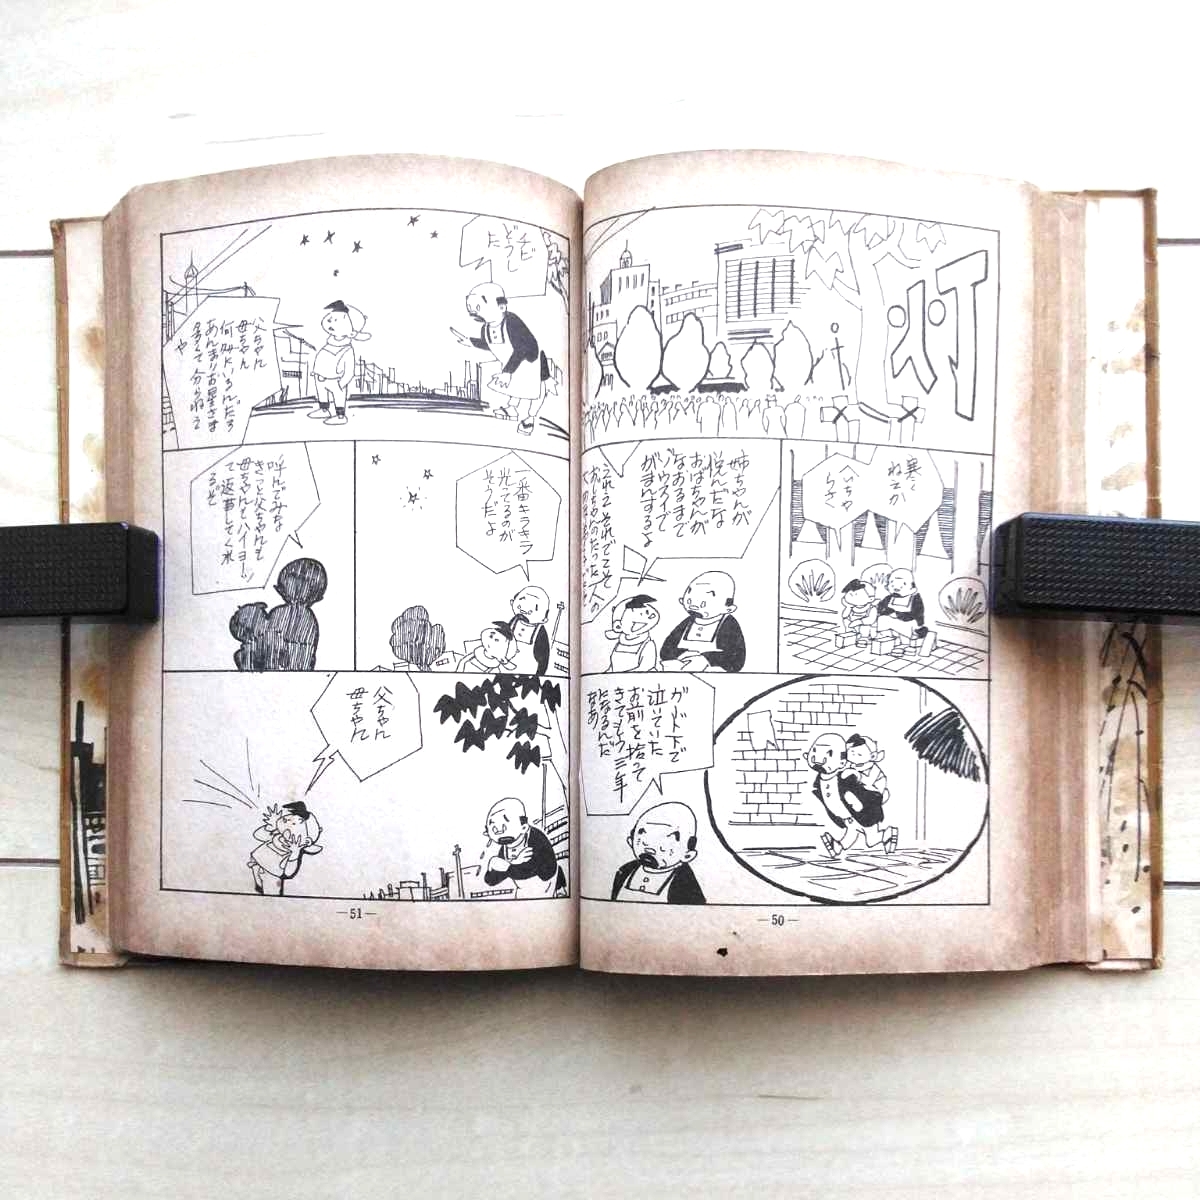 灯
寒く
ねえか
へいちゃ
らさ
姉ちゃんが
悦んだな
おばちゃんが
なおるまで
ゾウスイで
がまんするよ
えれえ それでこそ
おじちゃんのたった一人の
ガード下で
泣いていた
お前を捨って
きてもう三年
になるんだ
なあ
—50—
チビ
どうし
た
父ちゃん
母ちゃん
何処にいるんだろ
あんまりお星さま
多くて分らねえ
や
一番キラキラ
光ってるのが
そうだよ
呼んでみな
きっと父ちゃんも
母ちゃんもハイヨーッ
て返事してくれ
るぞ
父ちゃん
母ちゃん
—51—